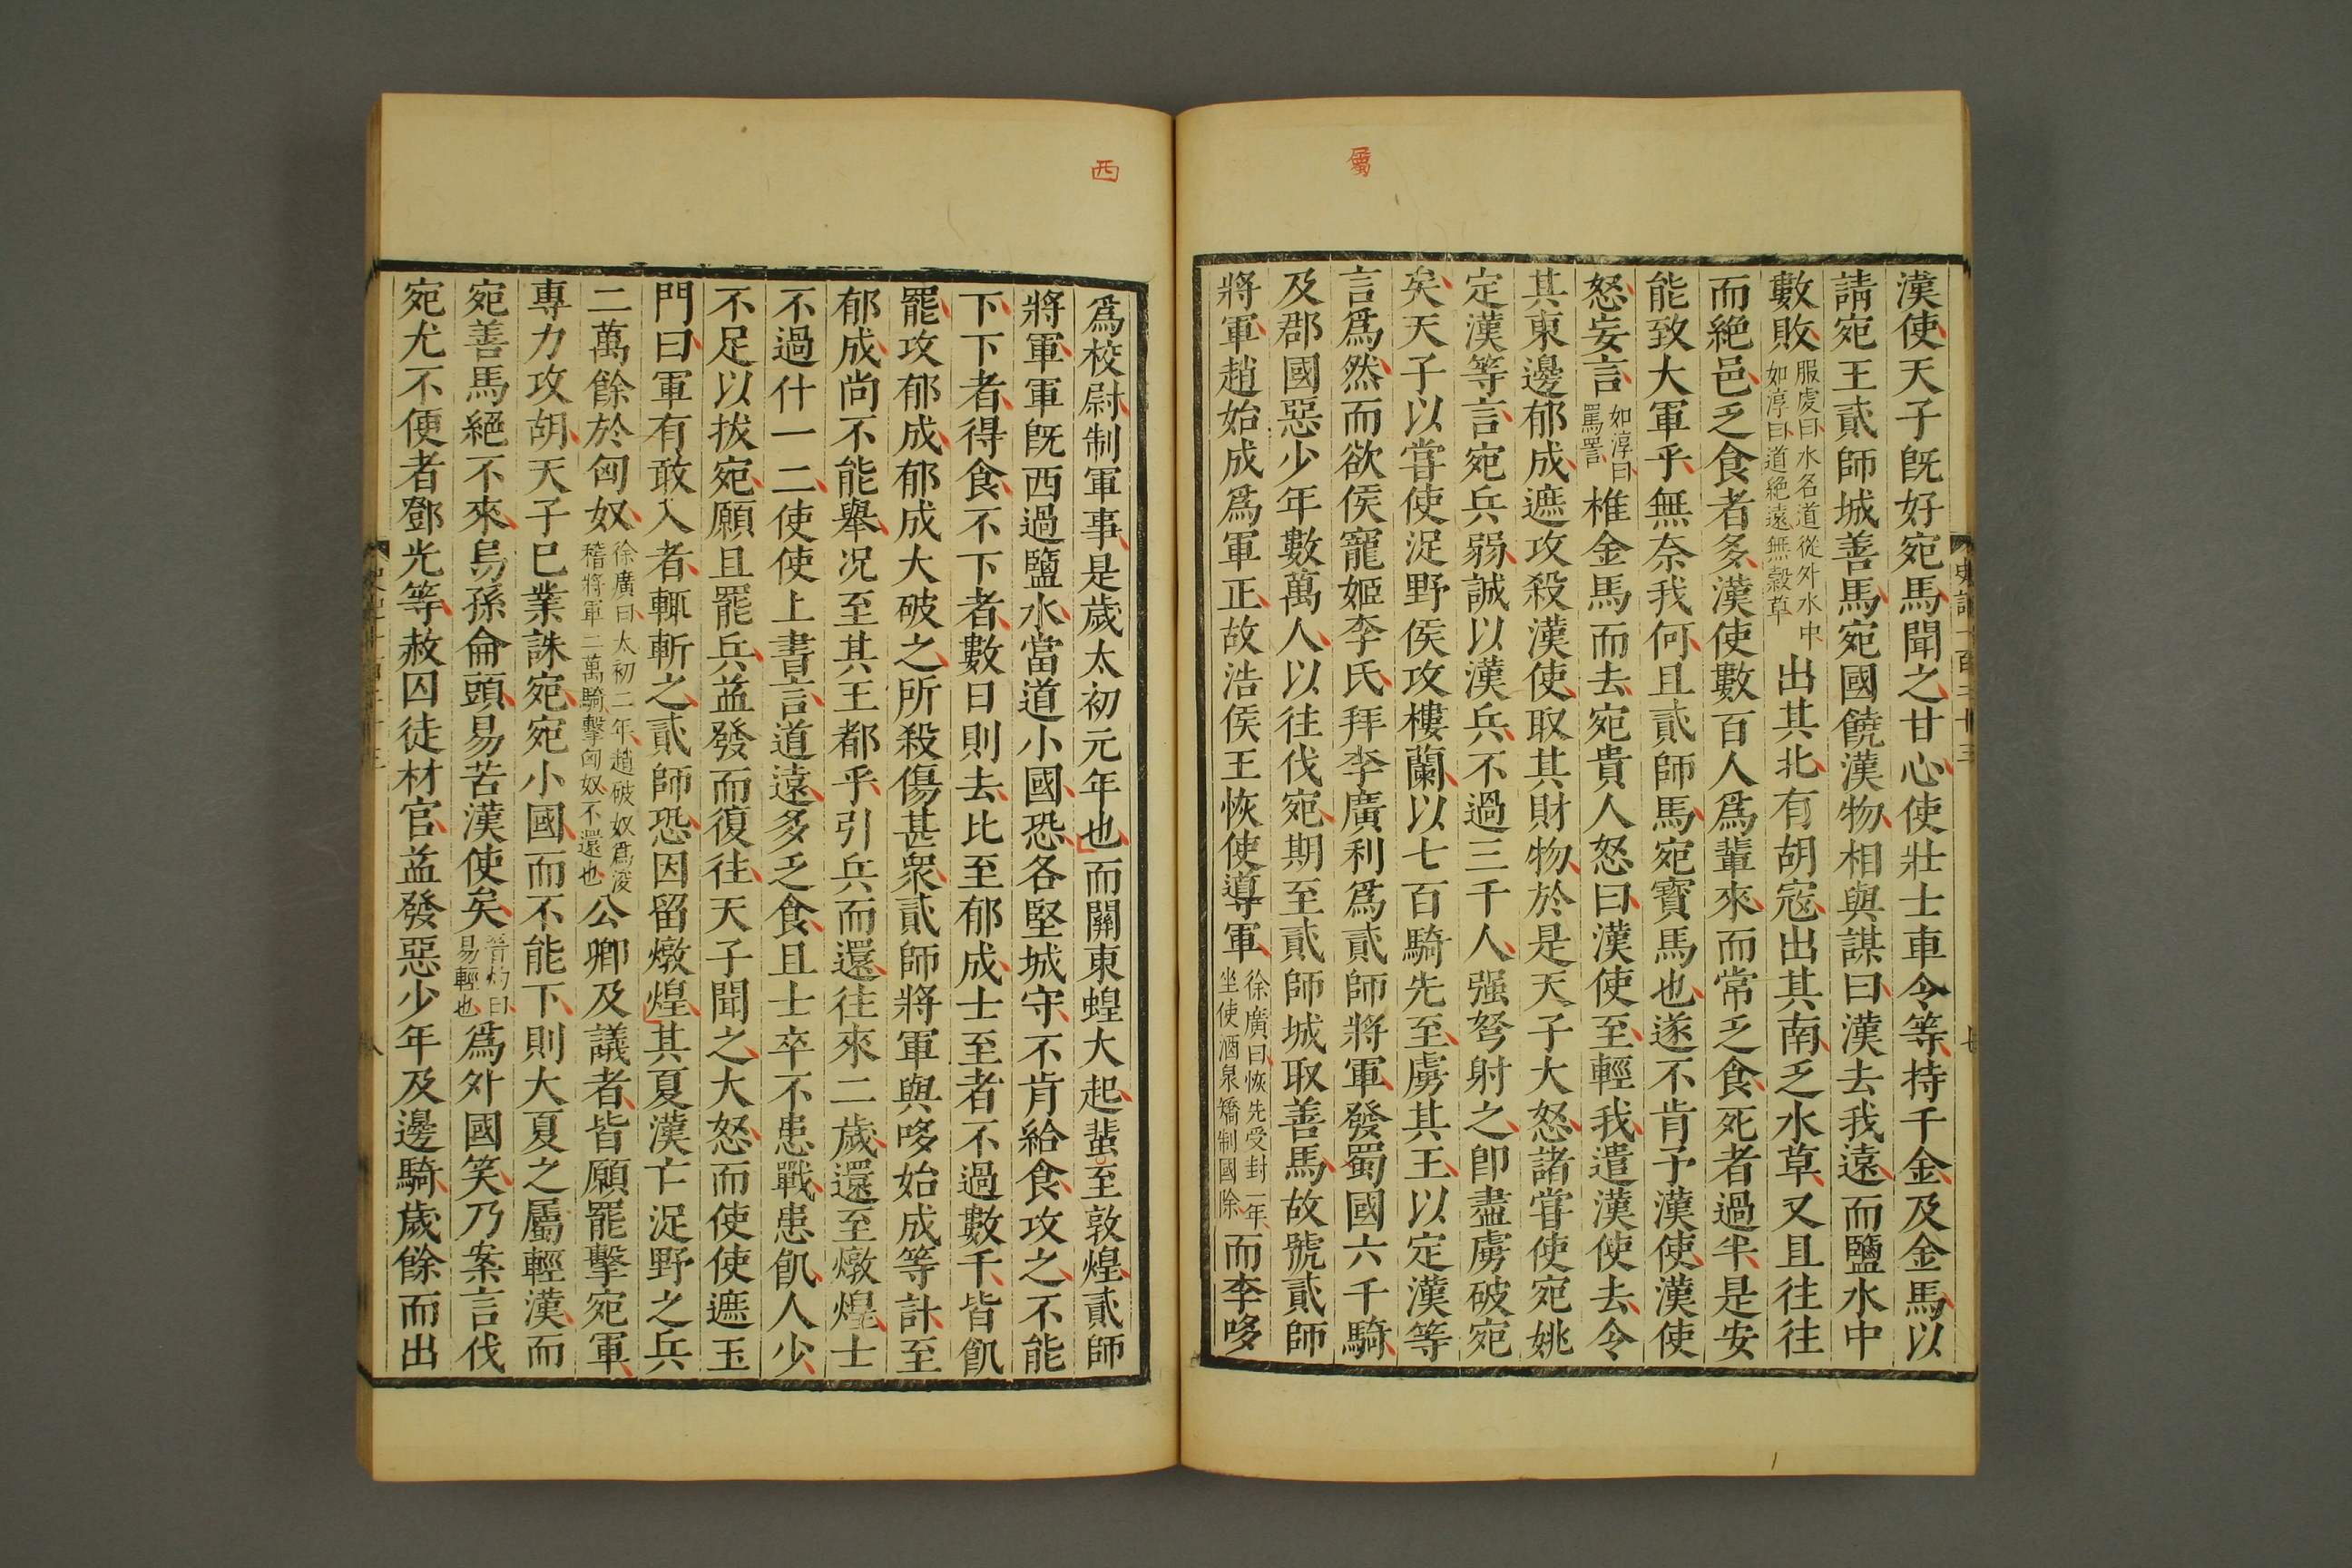 屬
漢使天子既好宛馬聞之甘心使壯士車令等持千金及金馬以
請宛王貳師城善馬宛國饒漢物相與謀曰漢去我遠而鹽水中
數敗服虔曰水名道從外水中如淳曰道絕遠無穀草出其北有胡寇出其南乏水草又且往往
而絕邑乏食者多漢使數百人爲輩來而常乏食死者過半是安
能致大軍乎無奈我何且貳師馬宛寶馬也遂不肯予漢使漢使
怒妄言如淳曰罵詈椎金馬而去宛貴人怒曰漢使至輕我遣漢使去令
其東邊郁成遮攻殺漢使取其財物於是天子大怒諸嘗使宛姚
定漢等言宛兵弱誠以漢兵不過三千人强弩射之卽盡虜破宛
矣天子以嘗使浞野侯攻樓蘭以七百騎先至虜其王以定漢等
言爲然而欲侯寵姬李氏拜李廣利爲貳師將軍發蜀國六千騎
及郡國惡少年數萬人以往伐宛期至貳師城取善馬故號貳師
將軍趙始成爲軍正故浩侯王恢使導軍徐廣曰恢先受封一年坐使酒泉矯制國除而李哆
西
爲校尉制軍事是歲太初元年也而關東蝗大起蜚至敦煌貳師
將軍軍既西過鹽水當道小國恐各堅城守不肯給食攻之不能
下下者得食不下者數日則去比至郁成士至者不過數千皆飢
罷攻郁成郁成大破之所殺傷甚衆貳師將軍與哆始成等計至
郁成尚不能舉况至其王都乎引兵而還往來二歲還至燉煌士
不過什一二使使上書言道遠多乏食且士卒不患戰患飢人少
不足以拔宛願且罷兵益發而復往天子聞之大怒而使使遮玉
門曰軍有敢入者輒斬之貳師恐因留燉煌其夏漢亡浞野之兵
二萬餘於匈奴徐廣曰太初二年趙破奴爲浚稽將軍二萬騎擊匈奴不還也公卿及議者皆願罷擊宛軍
專力攻胡天子已業誅宛宛小國而不能下則大夏之屬輕漢而
宛善馬絕不來烏孫侖頭易苦漢使矣晉灼曰易輕也爲外國笑乃案言伐
宛尤不便者鄧光等赦囚徒材官益發惡少年及邊騎歲餘而出